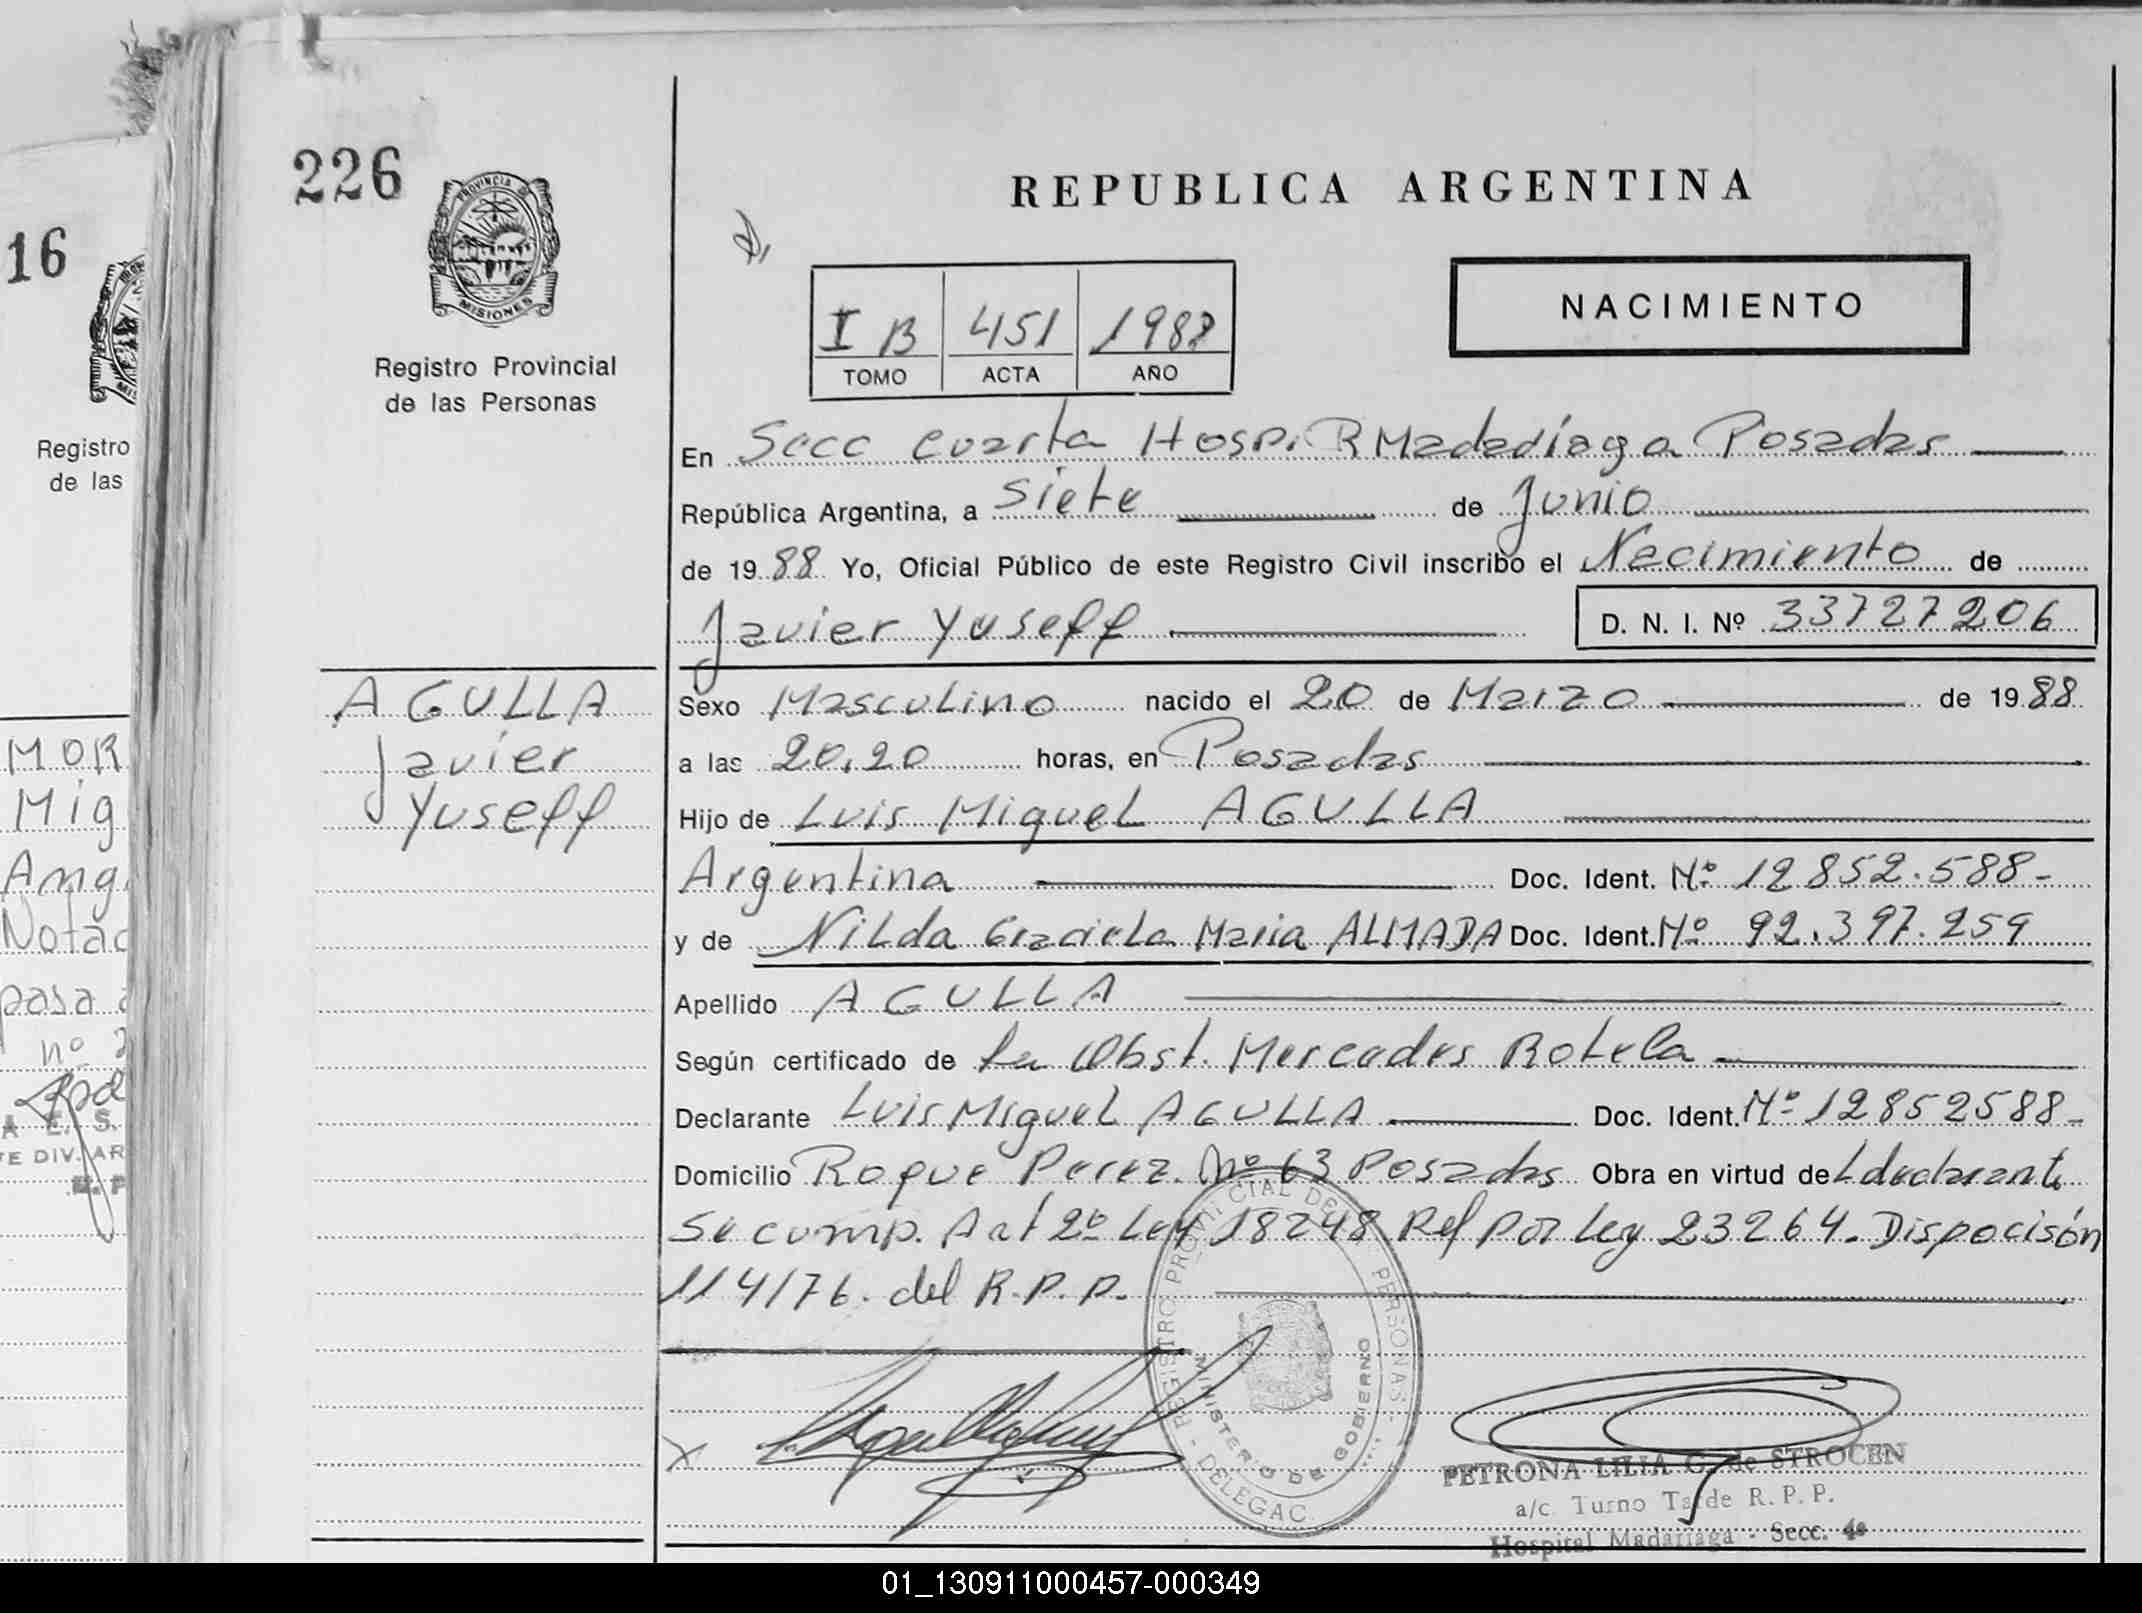 226
PROVINCIA DE
MISIONES
Registro Provincial
de las Personas
AGULLA
Javier
Yuseff
16
Registro
de las
MOR
Mig
Amg
Notac
pasa a
nº 2
A E. S.
TE DIV. AR
REPUBLICA ARGENTINA
NACIMIENTO
I B 451 1988
TOMO ACTA AÑO
En Secc cuarta Hosp. R Madariaga Posadas
República Argentina, a Siete de Junio
de 1988 Yo, Oficial Público de este Registro Civil inscribo el Nacimiento de
Javier Yuseff D. N. I. Nº 33727206
Sexo Masculino nacido el 20 de Marzo de 1988
a las 20,20 horas, en Posadas
Hijo de Luis Miguel AGULLA
Argentina Doc. Ident. Nº 12852.588-
y de Nilda Graciela Maria ALMADA Doc. Ident. Nº 92.397.259
Apellido AGULLA
Según certificado de la Obst. Mercedes Rotela
Declarante Luis Miguel AGULLA Doc. Ident. Nº 12852588-
Domicilio Roque Perez. Nº 63 Posadas Obra en virtud de L declarante
Se comp. Art 2º Ley 18248 Ref por Ley 23264. Dispocisón
114/76. del R.P.P.
REGISTRO PROVINCIAL DE PERSONAS - DELEGAC.
MINISTERIO DE GOBIERNO
X
PETRONA LILIA G. de STROCEN
a/c Turno Tarde R. P. P.
Hospital Madariaga - Secc. 4ª
01_130911000457-000349